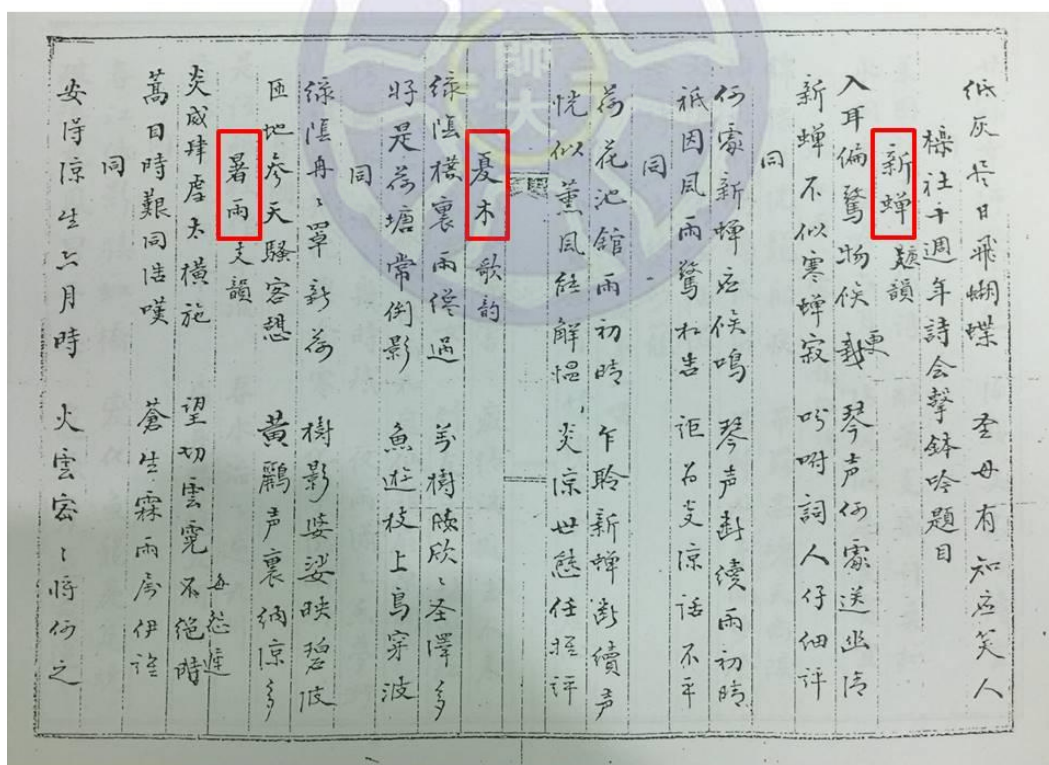 師大
低灰冷日飛蝴蝶 聖母有知應笑人
櫟社十週年詩会擊鉢吟題目
新蟬 題韻
入耳偏驚物候更 琴声何處送幽情
新蟬不似寒蟬寂 吩咐詞人仔細評
同
何處新蟬應候鳴 琴声断續雨初晴
祇因風雨驚相告 詎为炎涼話不平
同
荷花池館雨初晴 乍聆新蟬断續声
恍似薰風能解慍 炎凉世態任推評
夏木 歌韵
綠陰樓裏雨纔過 萬樹欣欣聖澤多
好是荷塘常倒影 魚遊枝上鳥穿波
同
綠陰冉冉罩新荷 樹影婆娑映碧波
匝地参天騷客憩 黃鸝声裏納凉多
暑雨 支韻
炎威肆虐太横施 望切雲霓不絕時
每怨遲
蒿目時艱同浩嘆 蒼生霖雨属伊誰
同
安得凉生六月時 火雲密密將何之